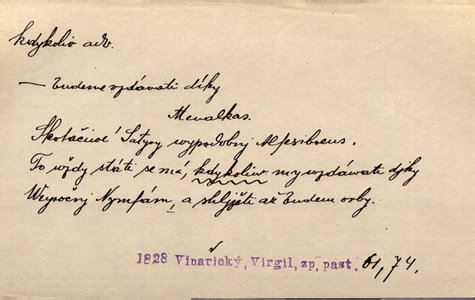 kdykoliv adv.
— budeme vzdávati díky
Menalkas.
Skotačivé Satyry wypodobnj Alfesiboeus.
To wždy státi se má, kdykoliw my wzdáwati djky
Weyročnj Nymfám, a
až budem orby.
1828 Vinařický, Virgil, zp. past. 61, 74.